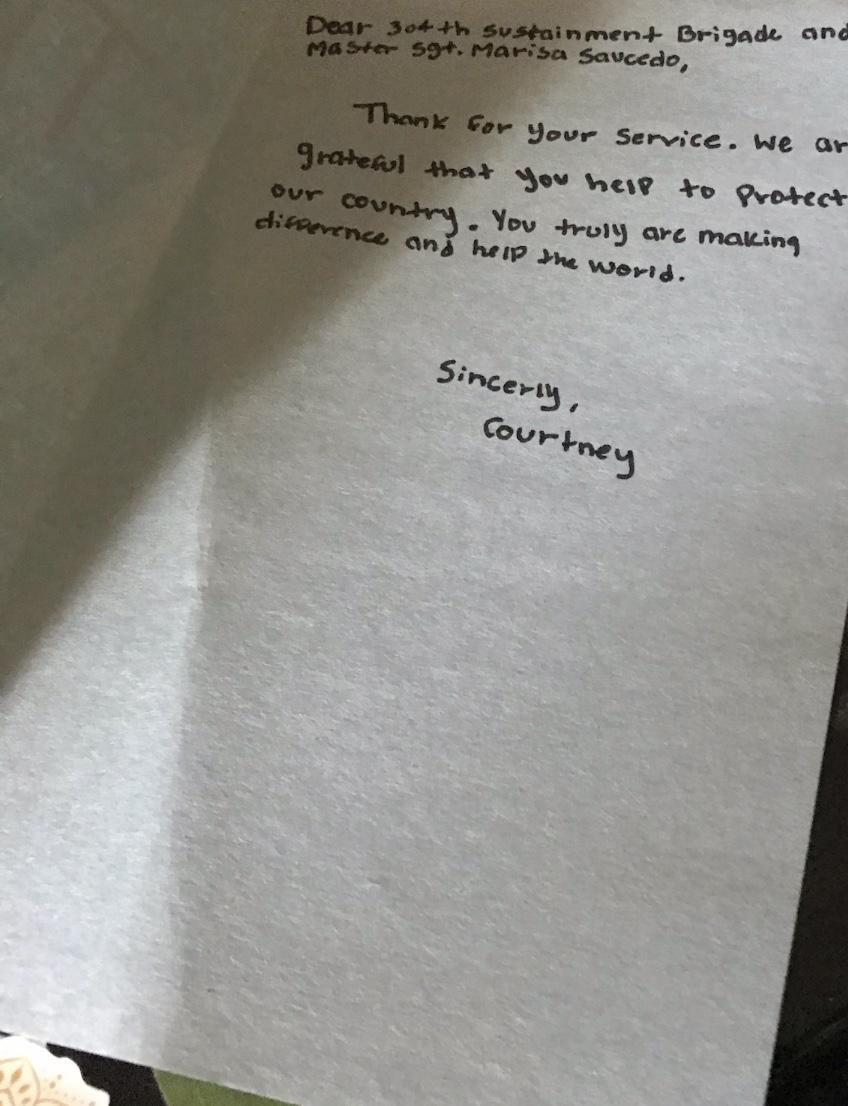 Dear 304th Sustainment Brigade and
Master Sgt. Marisa Saucedo,
Thank for your service. We ar
grateful that you help to protect
our country. You truly are making
difference and help the world.
Sincerly,
Courtney